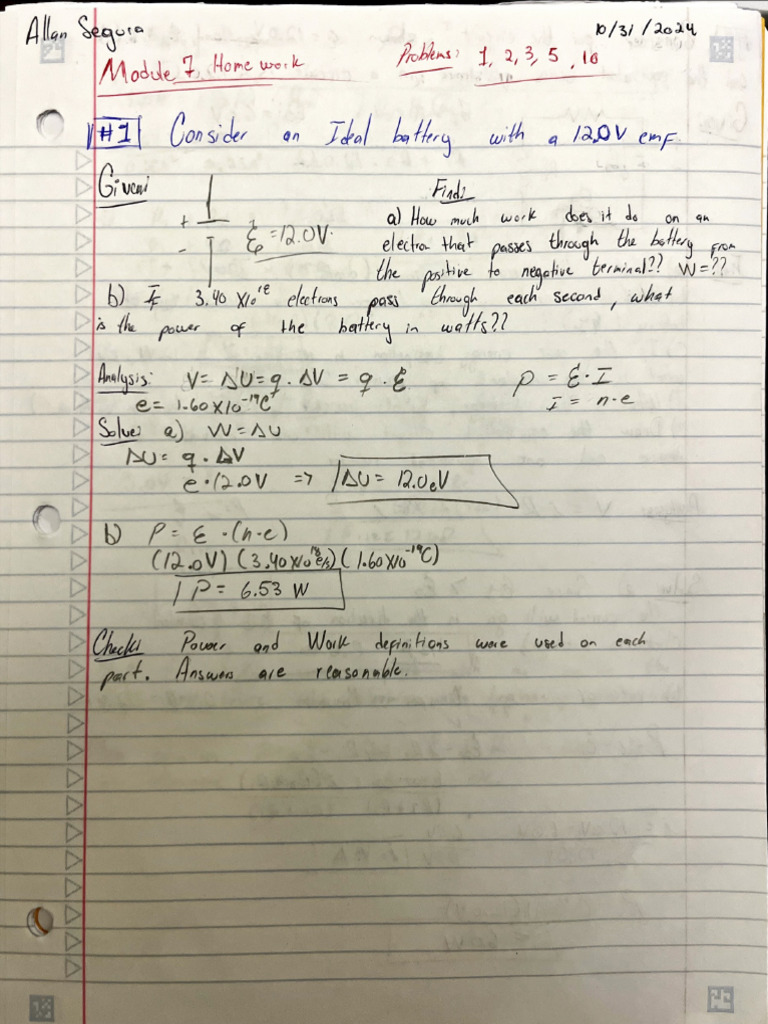 Allan Segura
10/31/2024
Module 7, Homework
Problems: 1, 2, 3, 5, 10
#1 Consider an Ideal battery with a 12.0V emf.
Given:
+
-
ℰ = 12.0V.
Find:
a) How much work does it do on an
electron that passes through the battery from
the positive to negative terminal?? W=??
b) If 3.40 x10^18 electrons pass through each second, what
is the power of the battery in watts??
Analysis: V= ΔU= q . ΔV = q . ℰ
P = ℰ . I
e = 1.60 x10^-19 C
I = n . e
Solve: a) W = ΔU
ΔU = q . ΔV
e . 12.0V => ΔU = 12.0eV
b) P = ℰ . (n.e)
(12.0V) (3.40 x10^18 e/s) (1.60 x10^-19 C)
P = 6.53 W
Check: Power and Work definitions were used on each
part. Answers are reasonable.